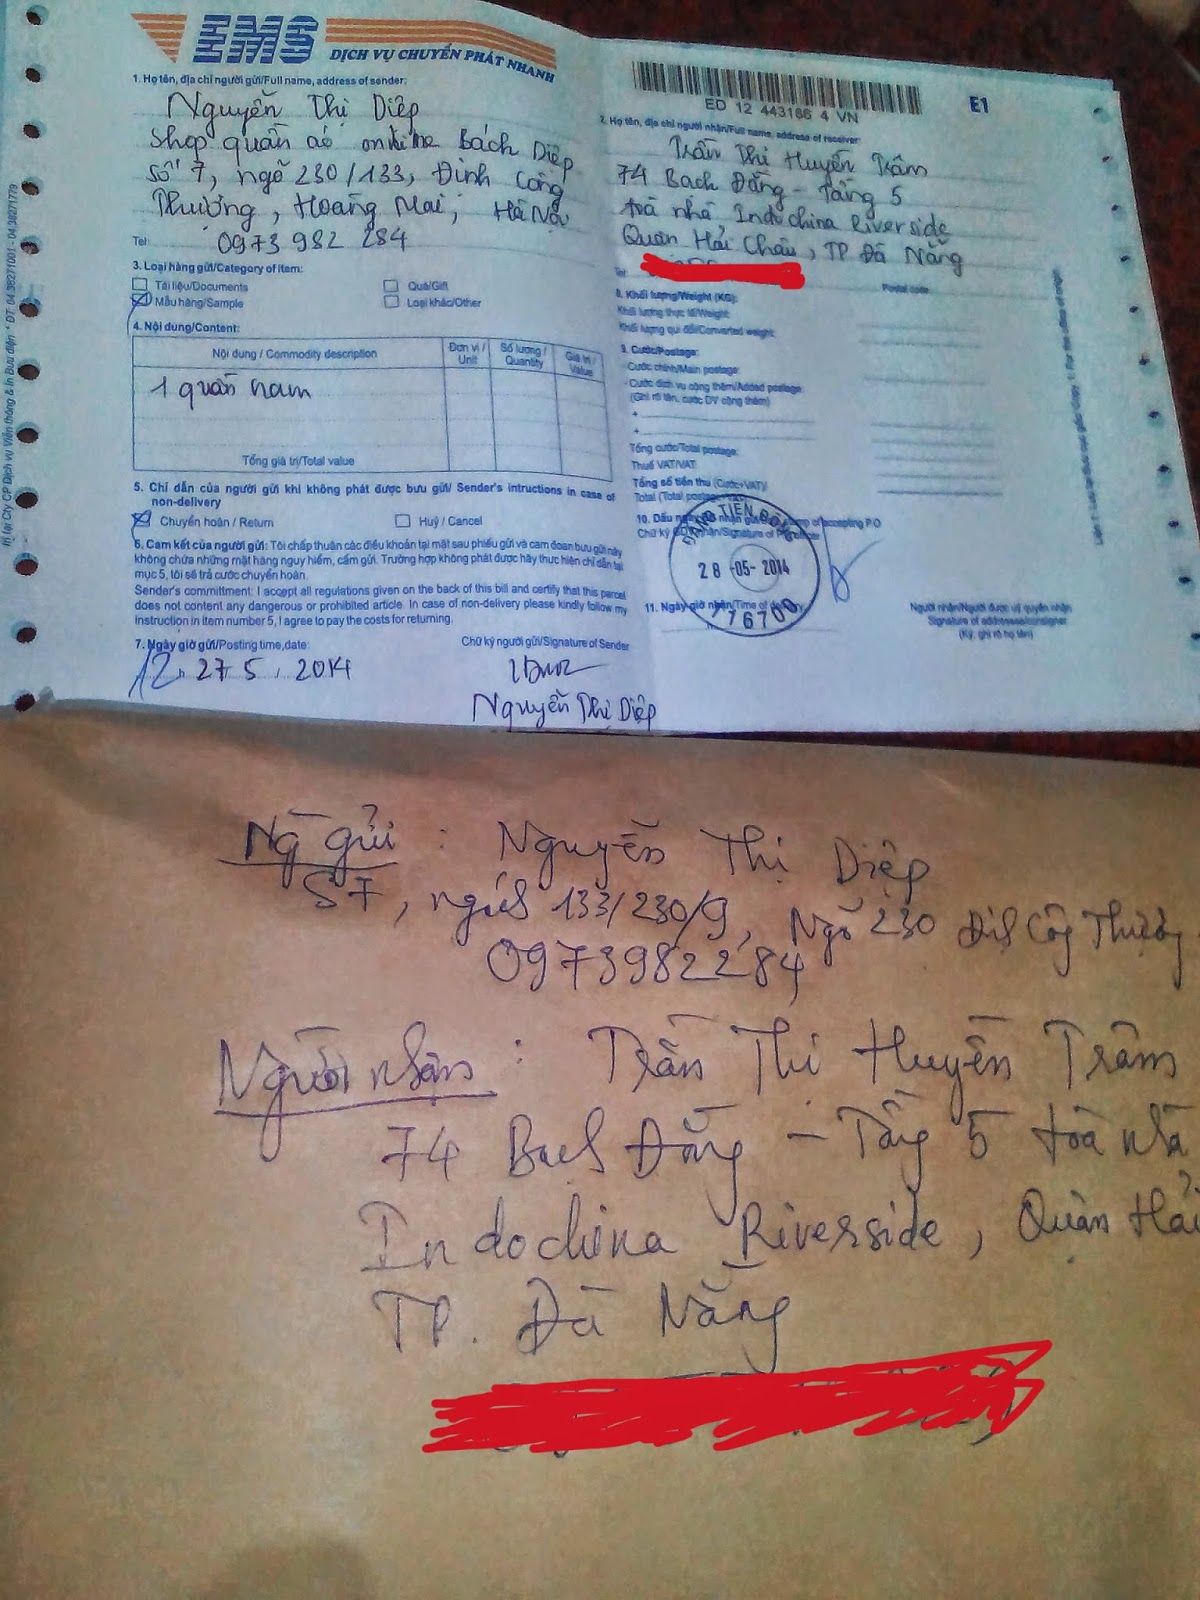 EMS
DỊCH VỤ CHUYỂN PHÁT NHANH
1. Họ tên, địa chỉ người gửi/Full name, address of sender:
Nguyễn Thị Diệp
shop quần áo online Bách Diệp
số 7, ngõ 230/133, Định Công
Thượng, Hoàng Mai, Hà Nội
Tel 0973 982 284
3. Loại hàng gửi/Category of item:
Tài liệu/Documents
Quà/Gift
Mẫu hàng/Sample
Loại khác/Other
4. Nội dung/Content:
Nội dung / Commodity description
Đơn vị / Unit
Số lượng / Quantity
Giá trị / Value
1 quần nam
Tổng giá trị/Total value
5. Chỉ dẫn của người gửi khi không phát được bưu gửi/ Sender's intructions in case of
non-delivery
Chuyển hoàn / Return
Huỷ / Cancel
6. Cam kết của người gửi: Tôi chấp thuận các điều khoản tại mặt sau phiếu gửi và cam đoan bưu gửi này
không chứa những mặt hàng nguy hiểm, cấm gửi. Trường hợp không phát được hãy thực hiện chỉ dẫn tại
mục 5, tôi sẽ trả cước chuyển hoàn.
Sender's commitment: I accept all regulations given on the back of this bill and certify that this parcel
does not content any dangerous or prohibited article. In case of non-delivery please kindly follow my
instruction in item number 5, I agree to pay the costs for returning.
7. Ngày giờ gửi/Posting time,date:
Chữ ký người gửi/Signature of Sender
12, 27 5, 2014
Nguyễn Thị Diệp
ED 12 443186 4 VN
E1
2. Họ tên, địa chỉ người nhận/Full name, address of receiver
Trần Thị Huyền Trâm
74 Bạch Đằng - Tầng 5
toà nhà Indochina Riverside
Quận Hải Châu, TP Đà Nẵng
Tel
Postal code
8. Khối lượng/Weight (KG):
Khối lượng thực tế/Weight:
Khối lượng qui đổi/Converted weight:
9. Cước/Postage:
- Cước chính/Main postage:
- Cước dịch vụ cộng thêm/Added postage:
(Ghi rõ tên, cước DV cộng thêm)
+
+
Tổng cước/Total postage:
Thuế VAT/VAT:
Tổng số tiền thu (Cước+VAT)/
Total (Total
10. Dấu of accepting P.O
Chữ ký
28 -05- 2014
11. Ngày giờ nhận/Time of
Người nhận/Người được uỷ quyền nhận
Signature of addressee/consigner
(Ký, ghi rõ họ tên)
116700
Ng gửi : Nguyễn Thị Diệp
S 7, ngách 133/230/9, Ngõ 230 Định Công Thượng
0973982284
Người nhận : Trần Thị Huyền Trâm
74 Bạch Đằng - Tầng 5 toà nhà
Indochina Riverside, Quận Hải
TP. Đà Nẵng